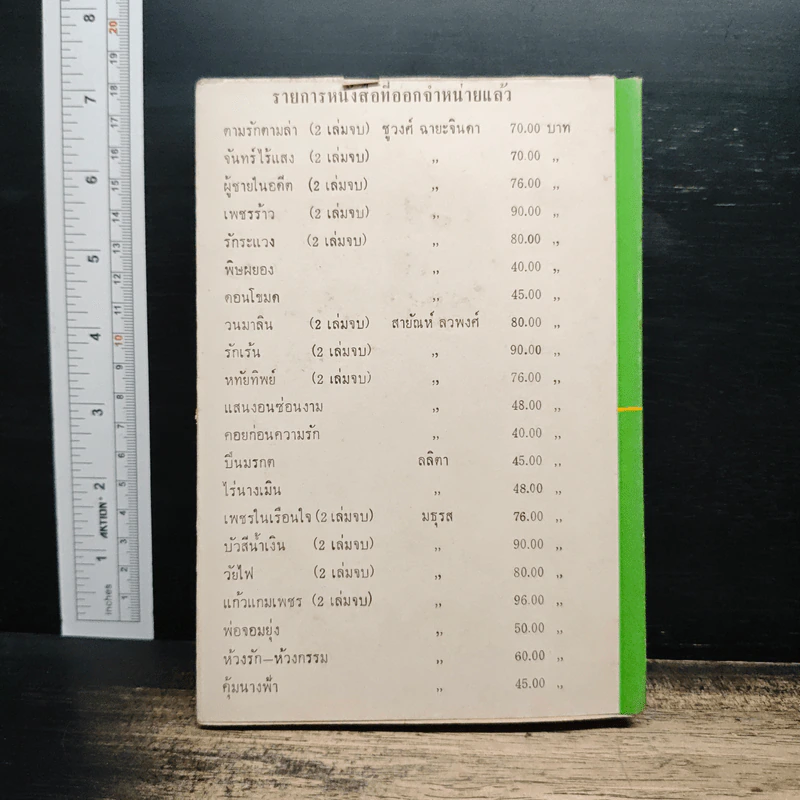 รายการหนังสือที่ออกจำหน่ายแล้ว
ตามรักตามล่า (2 เล่มจบ) ชูวงศ์ ฉายะจินดา 70.00 บาท
จันทร์ไร้แสง (2 เล่มจบ) ,, 70.00 ,,
ผู้ชายในอดีต (2 เล่มจบ) ,, 76.00 ,,
เพชรร้าว (2 เล่มจบ) ,, 90.00 ,,
รักระแวง (2 เล่มจบ) ,, 80.00 ,,
พิษผยอง ,, 40.00 ,,
ดอนโขมด ,, 45.00 ,,
วนมาลิน (2 เล่มจบ) สายัณห์ ลวพงศ์ 80.00 ,,
รักเร้น (2 เล่มจบ) ,, 90.00 ,,
หทัยทิพย์ (2 เล่มจบ) ,, 76.00 ,,
แสนงอนซ่อนงาม ,, 48.00 ,,
คอยก่อนความรัก ,, 40.00 ,,
ปิ่นมรกต ลลิตา 45.00 ,,
ไร่นางเมิน ,, 48.00 ,,
เพชรในเรือนใจ (2 เล่มจบ) มธุรส 76.00 ,,
บัวสีน้ำเงิน (2 เล่มจบ) ,, 90.00 ,,
วัยไฟ (2 เล่มจบ) ,, 80.00 ,,
แก้วแกมเพชร (2 เล่มจบ) ,, 96.00 ,,
พ่อจอมยุ่ง ,, 50.00 ,,
ห้วงรัก—ห้วงกรรม ,, 60.00 ,,
คุ้มนางฟ้า ,, 45.00 ,,
inches 1 2 3 4 5 6 7 8
AKTION
1 2 3 4 5 6 7 8 9 10 11 12 13 14 15 16 17 18 19 20